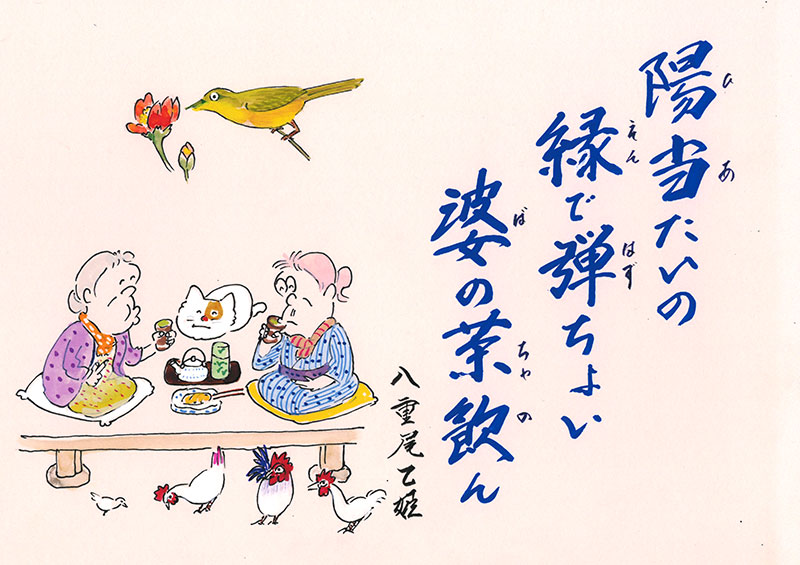 陽当たいの
ひ あ
縁で弾ちよい
えん はず
婆の茶飲ん
ば ちゃ の
八重尾乙姫